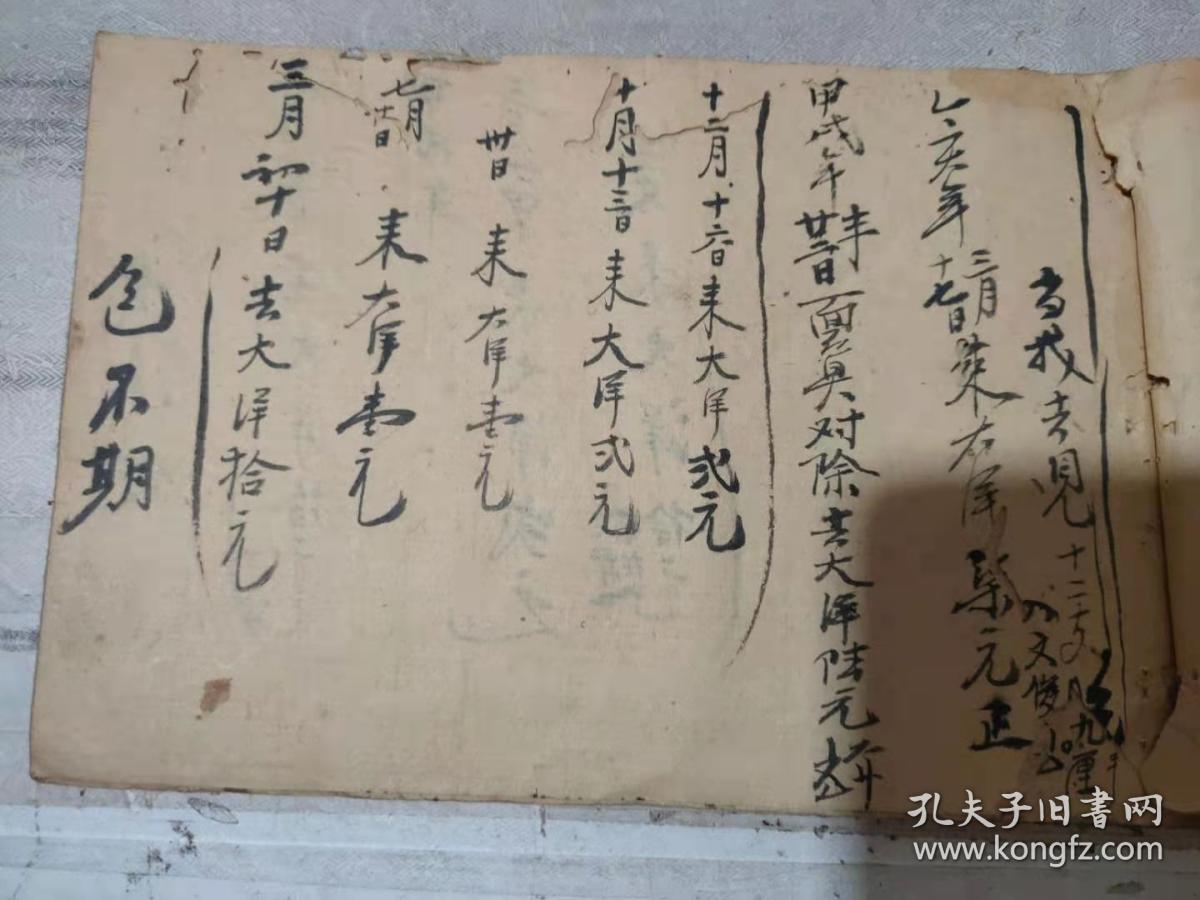 不期
三月初十日去大洋拾元
七月 日 来大洋壹元
卅日 来大洋壹元
十月十三日来大洋弍元
十二月十六日来大洋弍元
甲戌年 廿二日一面算对除去大洋陆元
乙亥年三月十七日来大洋柒元正
当找去 十二 文 九厘
文俊
孔夫子旧书网
www.kongfz.com